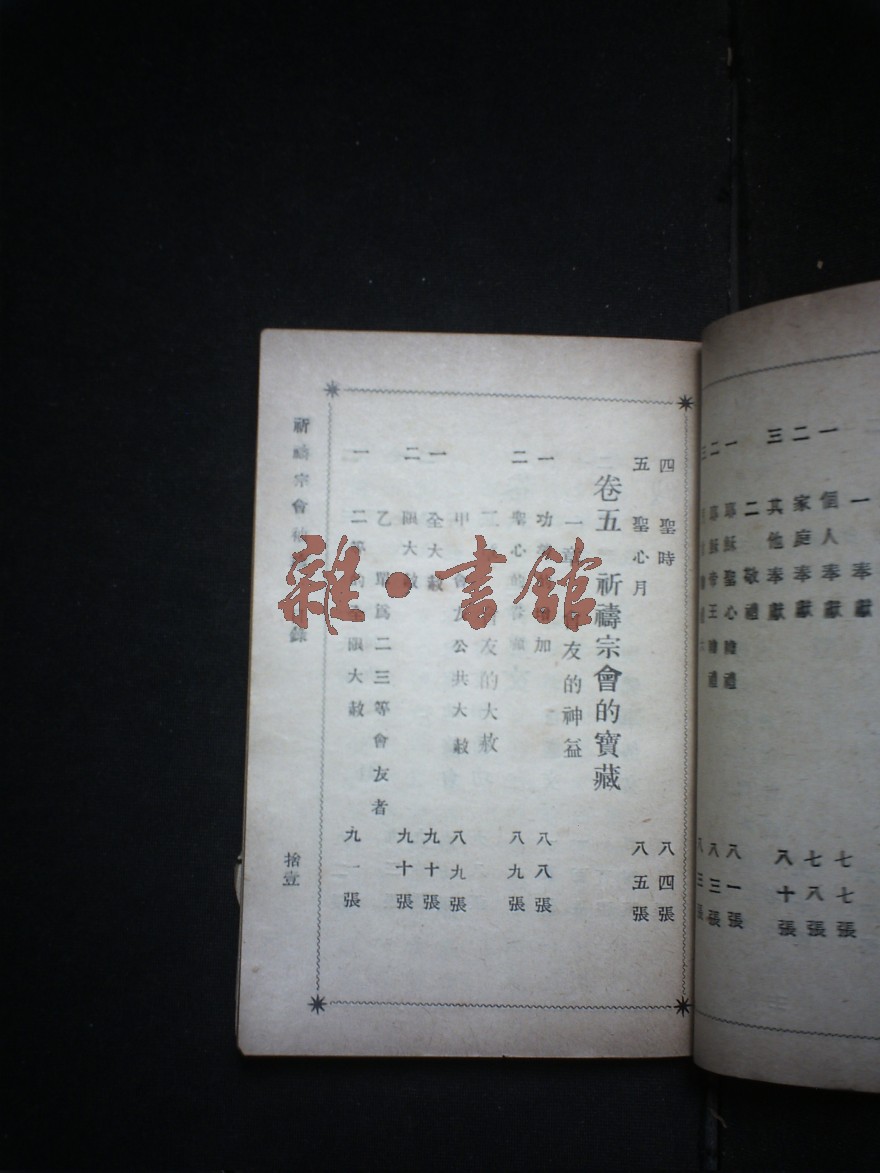 一 奉獻
一 個人奉獻 七七張
二 家庭奉獻 七八張
三 其他奉獻 八十張
二 敬禮
一 耶穌聖心瞻禮 八一張
二 耶穌帝王瞻禮 八三張
三 八三張
四 聖時 八四張
五 聖心月 八五張
卷五 祈禱宗會的寶藏
一 友的神益
一 功 加 八八張
二 聖心的 八九張
友的大赦
甲 會友公共大赦 八九張
一 全大赦 九十張
二 限大赦 九十張
乙 單為二三等會友者
一 二等的 限大赦 九一張
祈禱宗會 錄
拾壹
雜·書館